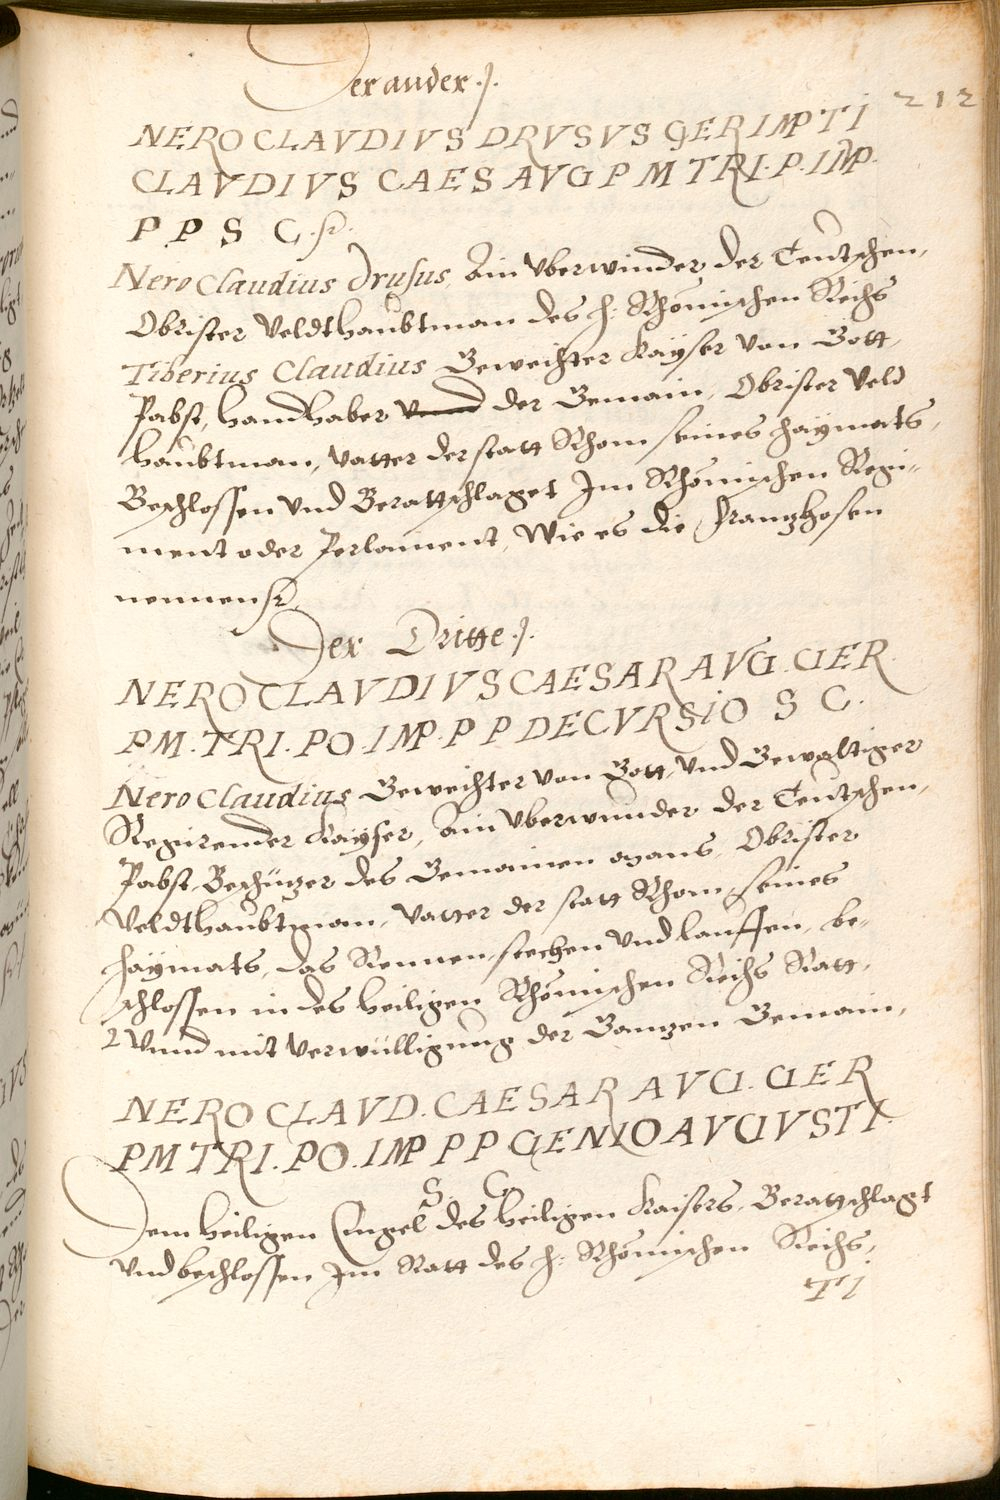 Der ander .|.
212
NERO CLAVDIVS DRVSVS GER IMP TI
CLAVDIVS CAES AVG P M TRI. P. IMP.
P P S C.
Nero Claudius Drusus, Ain Vberwinder der Teutschen,
Obrister Veldthaubtman des H: Rhömischen Reichs
Tiberius Claudius Geweichter Kayser von Gott,
Pabst, handhaber der Gemain, Obrister Veld
haubtman, Vatter der statt Rhom seines haymats,
Beschlossen vnd Berattschlaget Im Rhömischen Regi-
ment oder Perlament, Wie es die Frantzhosen
nennen
Der Dritte .|.
NERO CLAVDIVS CAESAR AVG. GER
PM. TRI. PO. IMP. P P DECVRSIO S C.
Nero Claudius Geweichter von Gott, vnd Gewaltiger
Regirender Kayser, Ain Vberwunder der Teutschen,
Pabst, Beschützer des Gemainen mans, Obrister
Veldthaubtman, Vatter der statt Rhom seines
haymats, das Rennen stechen vnd lauffen, be-
schlossen in des heiligen Rhömischen Reichs Ratt,
2 Vnnd mit Verwülligung der Gantzen Gemain,
NERO CLAVD. CAESAR AVG. GER
PM TRI. PO. IMP P P GENIO AVGVSTI.
S C
Dem heiligen Engel des heiligen Kaisers, Berattschlagt
vnd beschlossen Im Ratt des H: Rhömischen Reichs,
TI